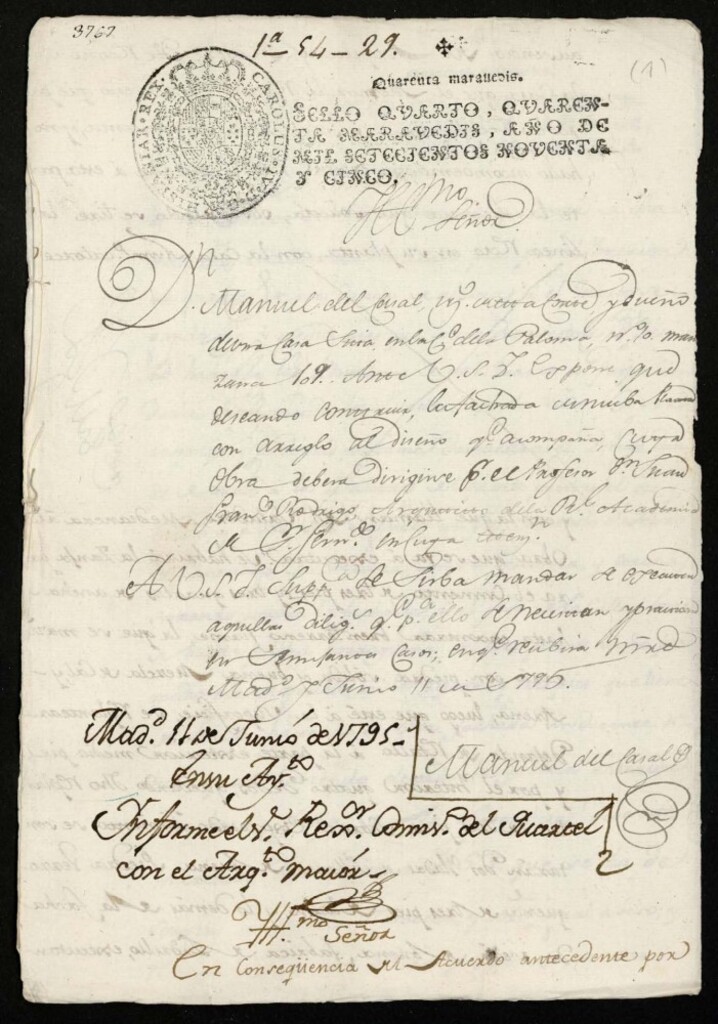 3767
1ª-54-29.
(1)
Quarenta marauedis.
SELLO QVARTO, QVAREN-
TA MARAVEDIS, AÑO DE
MIL SETECIENTOS NOVENTA
Y CINCO.
CAROLUS IV D. G. HISPANIAR. REX.
Yllmo
Señor
Dn. Manuel del Casal, y dueño
de una Casa Sita en la Ce. dela Paloma, nº. 10. man
zana 109. Ante V. S. I. Expone que
deseando construir, la fachada de nueba Planta
con arreglo al diseño qe. acompaña, cuya
Obra debera dirigirse pr. el Profesor Dn. Juan
Franco. Rodrigo, Arquitecto dela Rl. Academia
de Sn. Ferndo. en cuya aten.n
A V. S. I. Suppca. se sirba mandar se executen
aquellas diligs. qe. pa. ello se necesitan y practican
en semejantes Casos; en qe. recibira mrd
Madd. y Junio 11 de 1795.
Manuel del Casal
Madd. 11 de Junio de 1795.
En su Ayto
Informe el Sr. Rexor. Comiso. del Quartel
con el Arqto. maior
Yllmo
Señor
En Conseqüencia del Acuerdo antecedente por